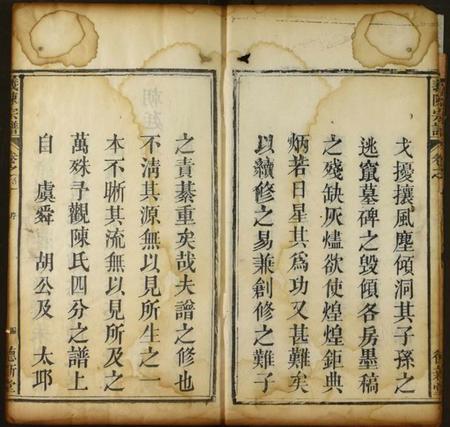 戈擾攘風塵傾洞其子孫之
逃竄墓碑之毀傾各房墨稿
之殘缺灰燼欲使煌煌鉅典
炳若日星其為功又甚難矣
以續修之易兼創修之難子
之責綦重矣哉夫譜之修也
不清其源無以見所生之一
本不晰其流無以見所及之
萬殊予觀陳氏四分之譜上
自 虞舜 胡公及 太邱
義陳宗譜
卷之
序
四
德新堂